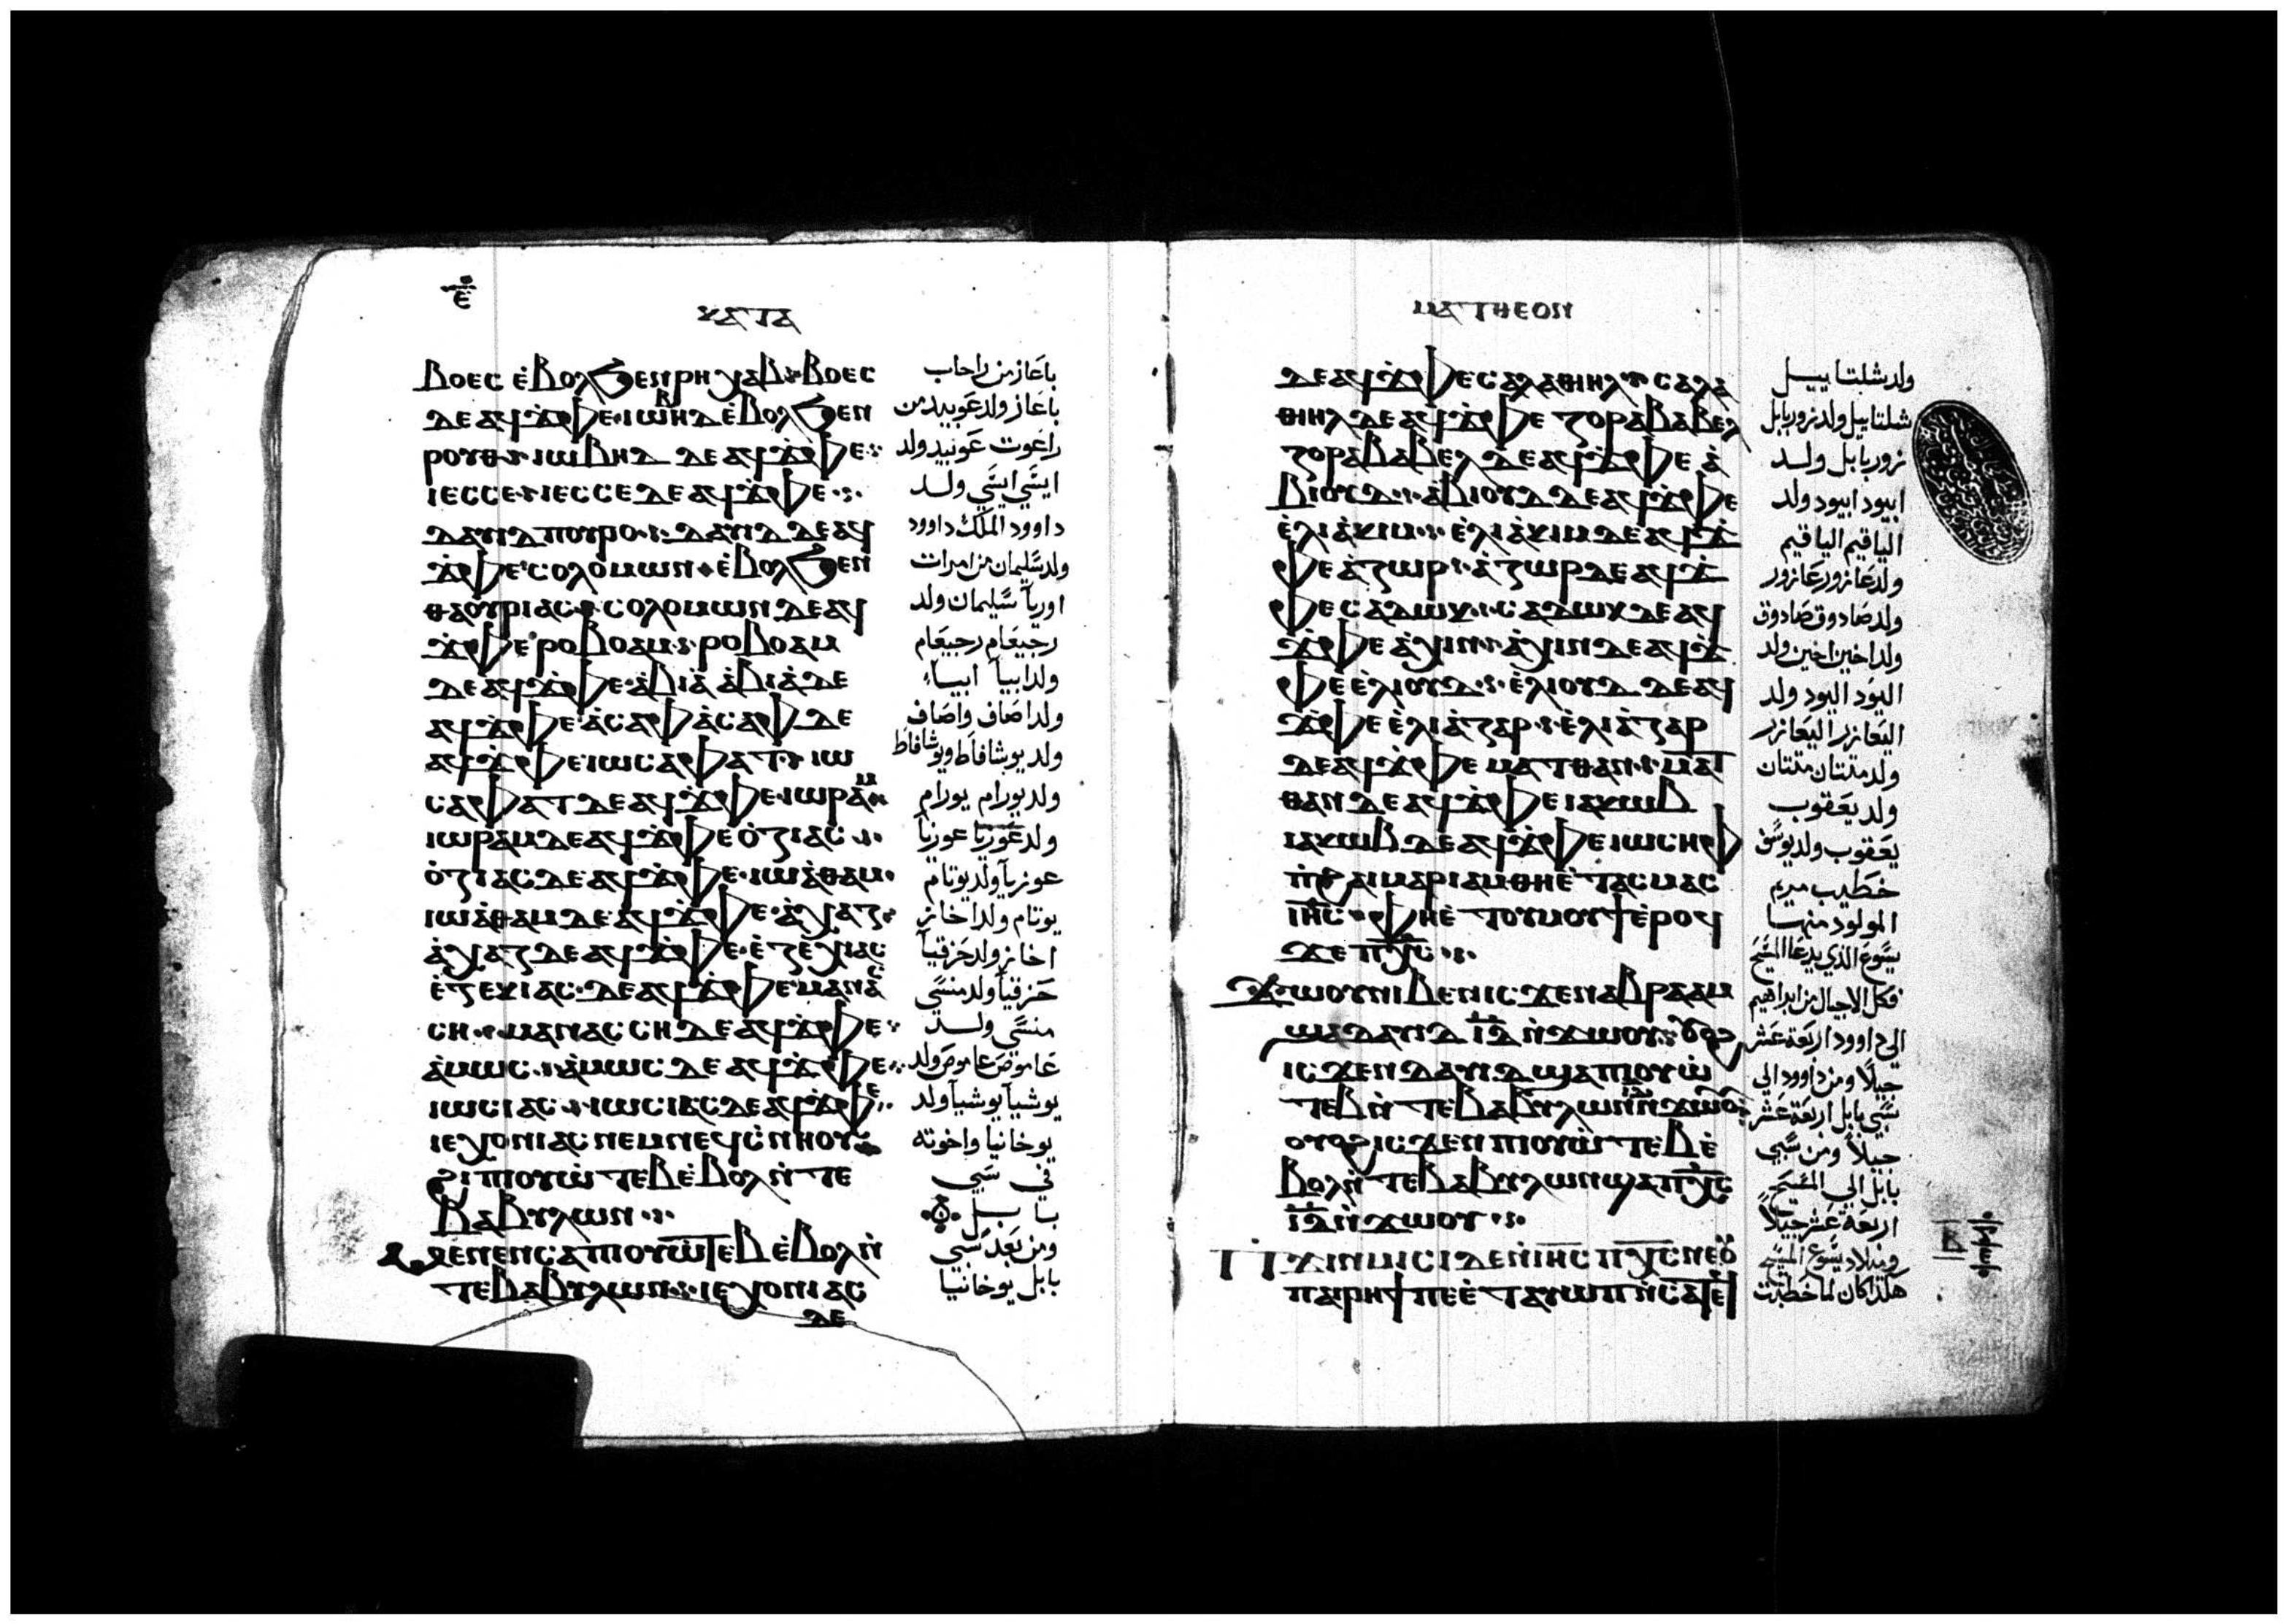 ⲉ̄
ⲕⲁⲧⲁ
ⲃⲟⲉⲥ ⲉ̀ⲃⲟⲗϧⲉⲛⲣⲏⲭⲁⲃ·ⲃⲟⲉⲥ
ⲇⲉⲁϥϫ̀ⲫⲉ·ⲓⲱⲃⲏⲇⲉ̀ⲃⲟⲗϧⲉⲛ
ⲣⲟⲩⲑ·ⲓⲱⲃⲏⲇ ⲇⲉⲁϥϫ̀ⲫⲉ
ⲓⲉⲥⲥⲉ·ⲓⲉⲥⲥⲉⲇⲉⲁϥϫ̀ⲫⲉ
ⲇⲁⲩⲓⲇⲡⲟⲩⲣⲟ·ⲇⲁⲩⲓⲇ ⲇⲉⲁϥ
ϫ̀ⲫⲉⲥⲟⲗⲟⲙⲱⲛ·ⲉ̀ⲃⲟⲗϧⲉⲛ
ⲑⲁⲟⲩⲣⲓⲁⲥ·ⲥⲟⲗⲟⲙⲱⲛⲇⲉⲁϥ
ϫ̀ⲫⲉⲣⲟⲃⲟⲁⲙ·ⲣⲟⲃⲟⲁⲙ
ⲇⲉⲁϥϫ̀ⲫⲉ·ⲁ̀ⲃⲓⲁ̀ ⲁ̀ⲃⲓⲁ̀ⲇⲉ
ⲁϥϫ̀ⲫⲉ·ⲁ̀ⲥⲁⲫ ⲁ̀ⲥⲁⲫ ⲇⲉ
ⲁϥϫ̀ⲫⲉ·ⲓⲱⲥⲁⲫⲁⲧ·ⲓⲱ
ⲥⲁⲫⲁⲧⲇⲉⲁϥϫ̀ⲫⲉ·ⲓⲱⲣⲁⲙ
ⲓⲱⲣⲁⲙⲇⲉⲁϥϫ̀ⲫⲉⲟ̀ⲍⲓⲁⲥ
ⲟ̀ⲍⲓⲁⲥⲇⲉⲁϥϫ̀ⲫⲉ·ⲓⲱⲁ̀ⲑⲁⲙ·
ⲓⲱⲁ̀ⲑⲁⲙⲇⲉⲁϥϫ̀ⲫⲉ·ⲁ̀ⲭⲁⲍ
ⲁ̀ⲭⲁⲍⲇⲉⲁϥϫ̀ⲫⲉ·ⲉ̀ⲍⲉⲭⲓⲁⲥ
ⲉ̀ⲍⲉⲕⲓⲁⲥ·ⲇⲉⲁϥϫ̀ⲫⲉⲙⲁⲛⲁⲥ
ⲥⲏ·ⲙⲁⲛⲁⲥⲥⲏⲇⲉⲁϥϫ̀ⲫⲉ
ⲁ̀ⲙⲱⲥ·ⲁ̀ⲙⲱⲥ ⲇⲉ ⲁϥϫ̀ⲫⲉ
ⲓⲱⲥⲓⲁⲥ·ⲓⲱⲥⲓⲁⲥⲇⲉⲁϥϫ̀ⲫⲉ
ⲓⲉⲭⲟⲛⲓⲁⲥⲛⲉⲙⲛⲉϥⲥ̀ⲛⲏⲟⲩ
ϩⲓⲡⲓⲟⲩⲱ̀ⲧⲉⲃⲉ̀ⲃⲟⲗⲛ̀ⲧⲉ
ⲃⲁⲃⲩⲗⲱⲛ
ⲙⲉⲛⲉⲛⲥⲁⲡⲓⲟⲩⲱ̀ⲧⲉⲃ ⲉ̀ⲃⲟⲗⲛ̀
ⲧⲉⲃⲁⲃⲩⲗⲱⲛ·ⲓⲉⲭⲟⲛⲓⲁⲥ
ⲇⲉ
باعاز من راحاب
باعاز ولد عوبيد من
راعوت عوبيد ولد
ايشي ايشي ولد
داوود الملك داوود
ولد سليمان من امرات
اوريا سليمان ولد
رحبعام رحبعام
ولد ابيا ابياء
ولد اصاف واصاف
ولد يوشافاط ويوشافاط
ولد يورام يورام
ولد عوزيا عوزيا
عوزيا ولد يوتام
يوتام ولد اخاز
اخاز ولد حزقيا
حزقيا ولد منسي
منسي ولد
عاموص عاموص ولد
يوشيا يوشيا ولد
يوخانيا واخوته
في سبي
بابل
ومن بعد سبي
بابل يوخانيا
ⲙⲁⲧⲑⲉⲟⲛ
ⲇⲉⲁϥϫ̀ⲫⲉⲥⲁⲗⲁⲑⲓⲏⲗ·ⲥⲁⲗⲁ
ⲑⲓⲏⲗⲇⲉⲁϥϫ̀ⲫⲉ ⲍⲟⲣⲁⲃⲁⲃⲉⲗ
ⲍⲟⲣⲁⲃⲁⲃⲉⲗⲇⲉⲁϥϫ̀ⲫⲉ ⲁ̀
ⲃⲓⲟⲩⲇ·ⲁ̀ⲃⲓⲟⲩⲇⲇⲉⲁϥϫ̀ⲫⲉ
ⲉ̀ⲗⲓⲁ̀ⲕⲓⲙ·ⲉ̀ⲗⲓⲁ̀ⲕⲓⲙⲇⲉⲁϥϫ̀
ⲫⲉⲁ̀ⲍⲱⲣ·ⲁ̀ⲍⲱⲣⲇⲉⲁϥϫ̀
ⲫⲉⲥⲁⲇⲱⲕ·ⲥⲁⲇⲱⲕⲇⲉⲁϥ
ϫ̀ⲫⲉⲁ̀ⲭⲓⲛ·ⲁ̀ⲭⲓⲛⲇⲉⲁϥϫ̀
ⲫⲉⲉ̀ⲗⲓⲟⲩⲇ·ⲉ̀ⲗⲓⲟⲩⲇ ⲇⲉⲁϥ
ϫ̀ⲫⲉⲉ̀ⲗⲓⲁ̀ⲍⲁⲣ·ⲉ̀ⲗⲓⲁ̀ⲍⲁⲣ
ⲇⲉⲁϥϫ̀ⲫⲉ ⲙⲁⲧⲑⲁⲛ·ⲙⲁⲧ
ⲑⲁⲛⲇⲉⲁϥϫ̀ⲫⲉⲓⲁⲕⲱⲃ
ⲓⲁⲕⲱⲃⲇⲉⲁϥϫ̀ⲫⲉⲓⲱⲥⲏⲫ
ⲡ̀ϩⲁⲓⲙⲁⲣⲓⲁⲙⲑⲏⲉ̀ⲧⲁⲥⲙⲁⲥ
ⲓⲏ̅ⲥ̅·ⲫⲏⲉ̀ⲧⲟⲩⲙⲟⲩϯⲉ̀ⲣⲟϥ
ϫⲉⲡⲭ̅ⲥ̅
ϫⲱⲟⲩⲛⲓⲃⲉⲛⲓⲥϫⲉⲛⲁⲃⲣⲁⲁⲙ
ϣⲁⲇⲁⲩⲓⲇ ⲓ̅ⲇ̅ ⲛ̀ϫⲱⲟⲩ·ⲟⲩⲟϩ
ⲓⲥϫⲉⲛⲇⲁⲩⲓⲇϣⲁⲡⲓⲟⲩⲱ̀
ⲧⲉⲃⲛ̀ⲧⲉⲃⲁⲃⲩⲗⲱⲛⲓ̅ⲇ̅ⲛ̀ϫⲱⲟⲩ
ⲟⲩⲟϩⲓⲥϫⲉⲛⲡⲓⲟⲩⲱ̀ⲧⲉⲃⲉ̀
ⲃⲟⲗⲛ̀ⲧⲉⲃⲁⲃⲩⲗⲱⲛϣⲁⲡⲭ̅ⲥ̅
ⲓ̅ⲇ̅ⲛ̀ϫⲱⲟⲩ
ⲡϫⲓⲛⲙⲓⲥⲓⲇⲉⲛ̀ⲓⲏ̅ⲥ̅ⲡⲭ̅ⲥ̅ⲛⲉⲟⲩ
ⲡⲁⲓⲣⲏϯⲡⲉⲉ̀ⲧⲁⲩⲱⲡⲛ̀ⲥⲁⲧⲉϥ
ولد شلتاييل
شلتاييل ولد زوربابل
زوربابل ولد
ابيود ابيود ولد
الياقيم الياقيم
ولد عازور عازور
ولد صادوق صادوق
ولد اخين اخين ولد
اليود اليود ولد
اليعازر اليعازر
ولد متتان متتان
ولد يعقوب
يعقوب ولد يوسف
خطيب مريم
المولود منها
يسوع الذي يدعا المسيح
فكل الاجيال من ابراهيم
الي داوود اربعة عشر
جيلاً ومن داوود الي
سبي بابل اربعة عشر
جيلاً ومن سبي
بابل الي المسيح
اربعة عشر جيلاً
وميلاد يسوع المسيح
هكذا كان لما خطبت
ⲃ